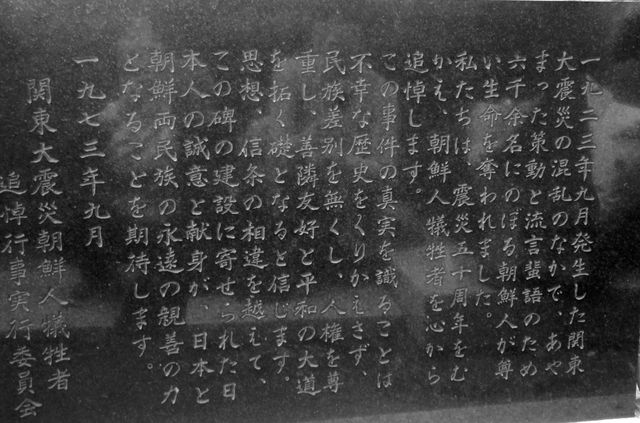 一九二三年九月発生した関東
大震災の混乱のなかで、あや
まった策動と流言蜚語のため
六千余名にのぼる朝鮮人が尊
い生命を奪われました。
私たちは、震災五十周年をむ
かえ、朝鮮人犠牲者を心から
追悼します。
この事件の真実を識ることは
不幸な歴史をくりかえさず、
民族差別を無くし、人権を尊
重し、善隣友好と平和の大道
を拓く礎となると信じます。
思想、信条の相違を越えて、
この碑の建設に寄せられた日
本人の誠意と献身が、日本と
朝鮮両民族の永遠の親善の力
となることを期待します。
一九七三年九月
関東大震災朝鮮人犠牲者
追悼行事実行委員会